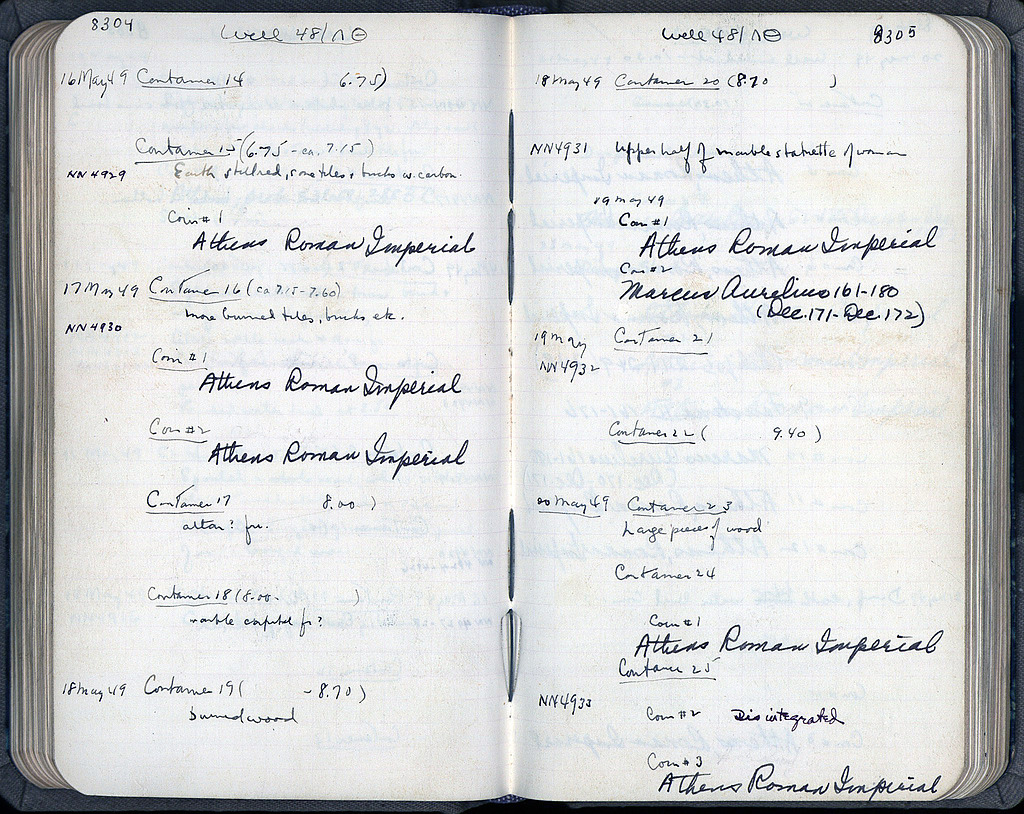 8304
Well 48/ΛΘ
16 May 49 Container 14 6.75)
Container 15 (6.75 - ca. 7.15)
NN 4929 Earth still red, some tiles + bricks w. carbon.
Coin #1
Athens Roman Imperial
17 May 49 Container 16 (ca 7.15-7.60)
more burned tiles, bricks etc.
NN 4930
Coin #1
Athens Roman Imperial
Coin #2
Athens Roman Imperial
Container 17 8.00)
altar? fr.
Container 18 (8.00- )
marble capital fr?
18 May 49 Container 19 ( - 8.70)
burned wood
8305
Well 48/ΛΘ
18 May 49 Container 20 (8.70 )
NN4931 Upper half of marble statuette of woman
19 May 49
Coin #1
Athens Roman Imperial
Coin #2
Marcus Aurelius 161-180
(Dec. 171-Dec. 172)
19 May Container 21
NN4932
Container 22 ( 9.40)
20 May 49 Container 23
Large pieces of wood
Container 24
Coin #1
Athens Roman Imperial
Container 25
NN4933
Coin #2 Disintegrated
Coin #3
Athens Roman Imperial